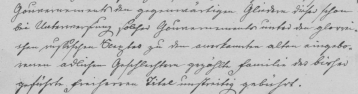 Gouvernements den gegenwärtigen Gliedern dieser schon
bei Unterwerfung dieser Gouvernements unter den glorrei-
chen, russischen Scepter zu den anerkannten alten eingebo-
renen adlichen Geschlechtern gezählte Familie der bisher
geführte Freiherren Titel unstreitig gebührt.